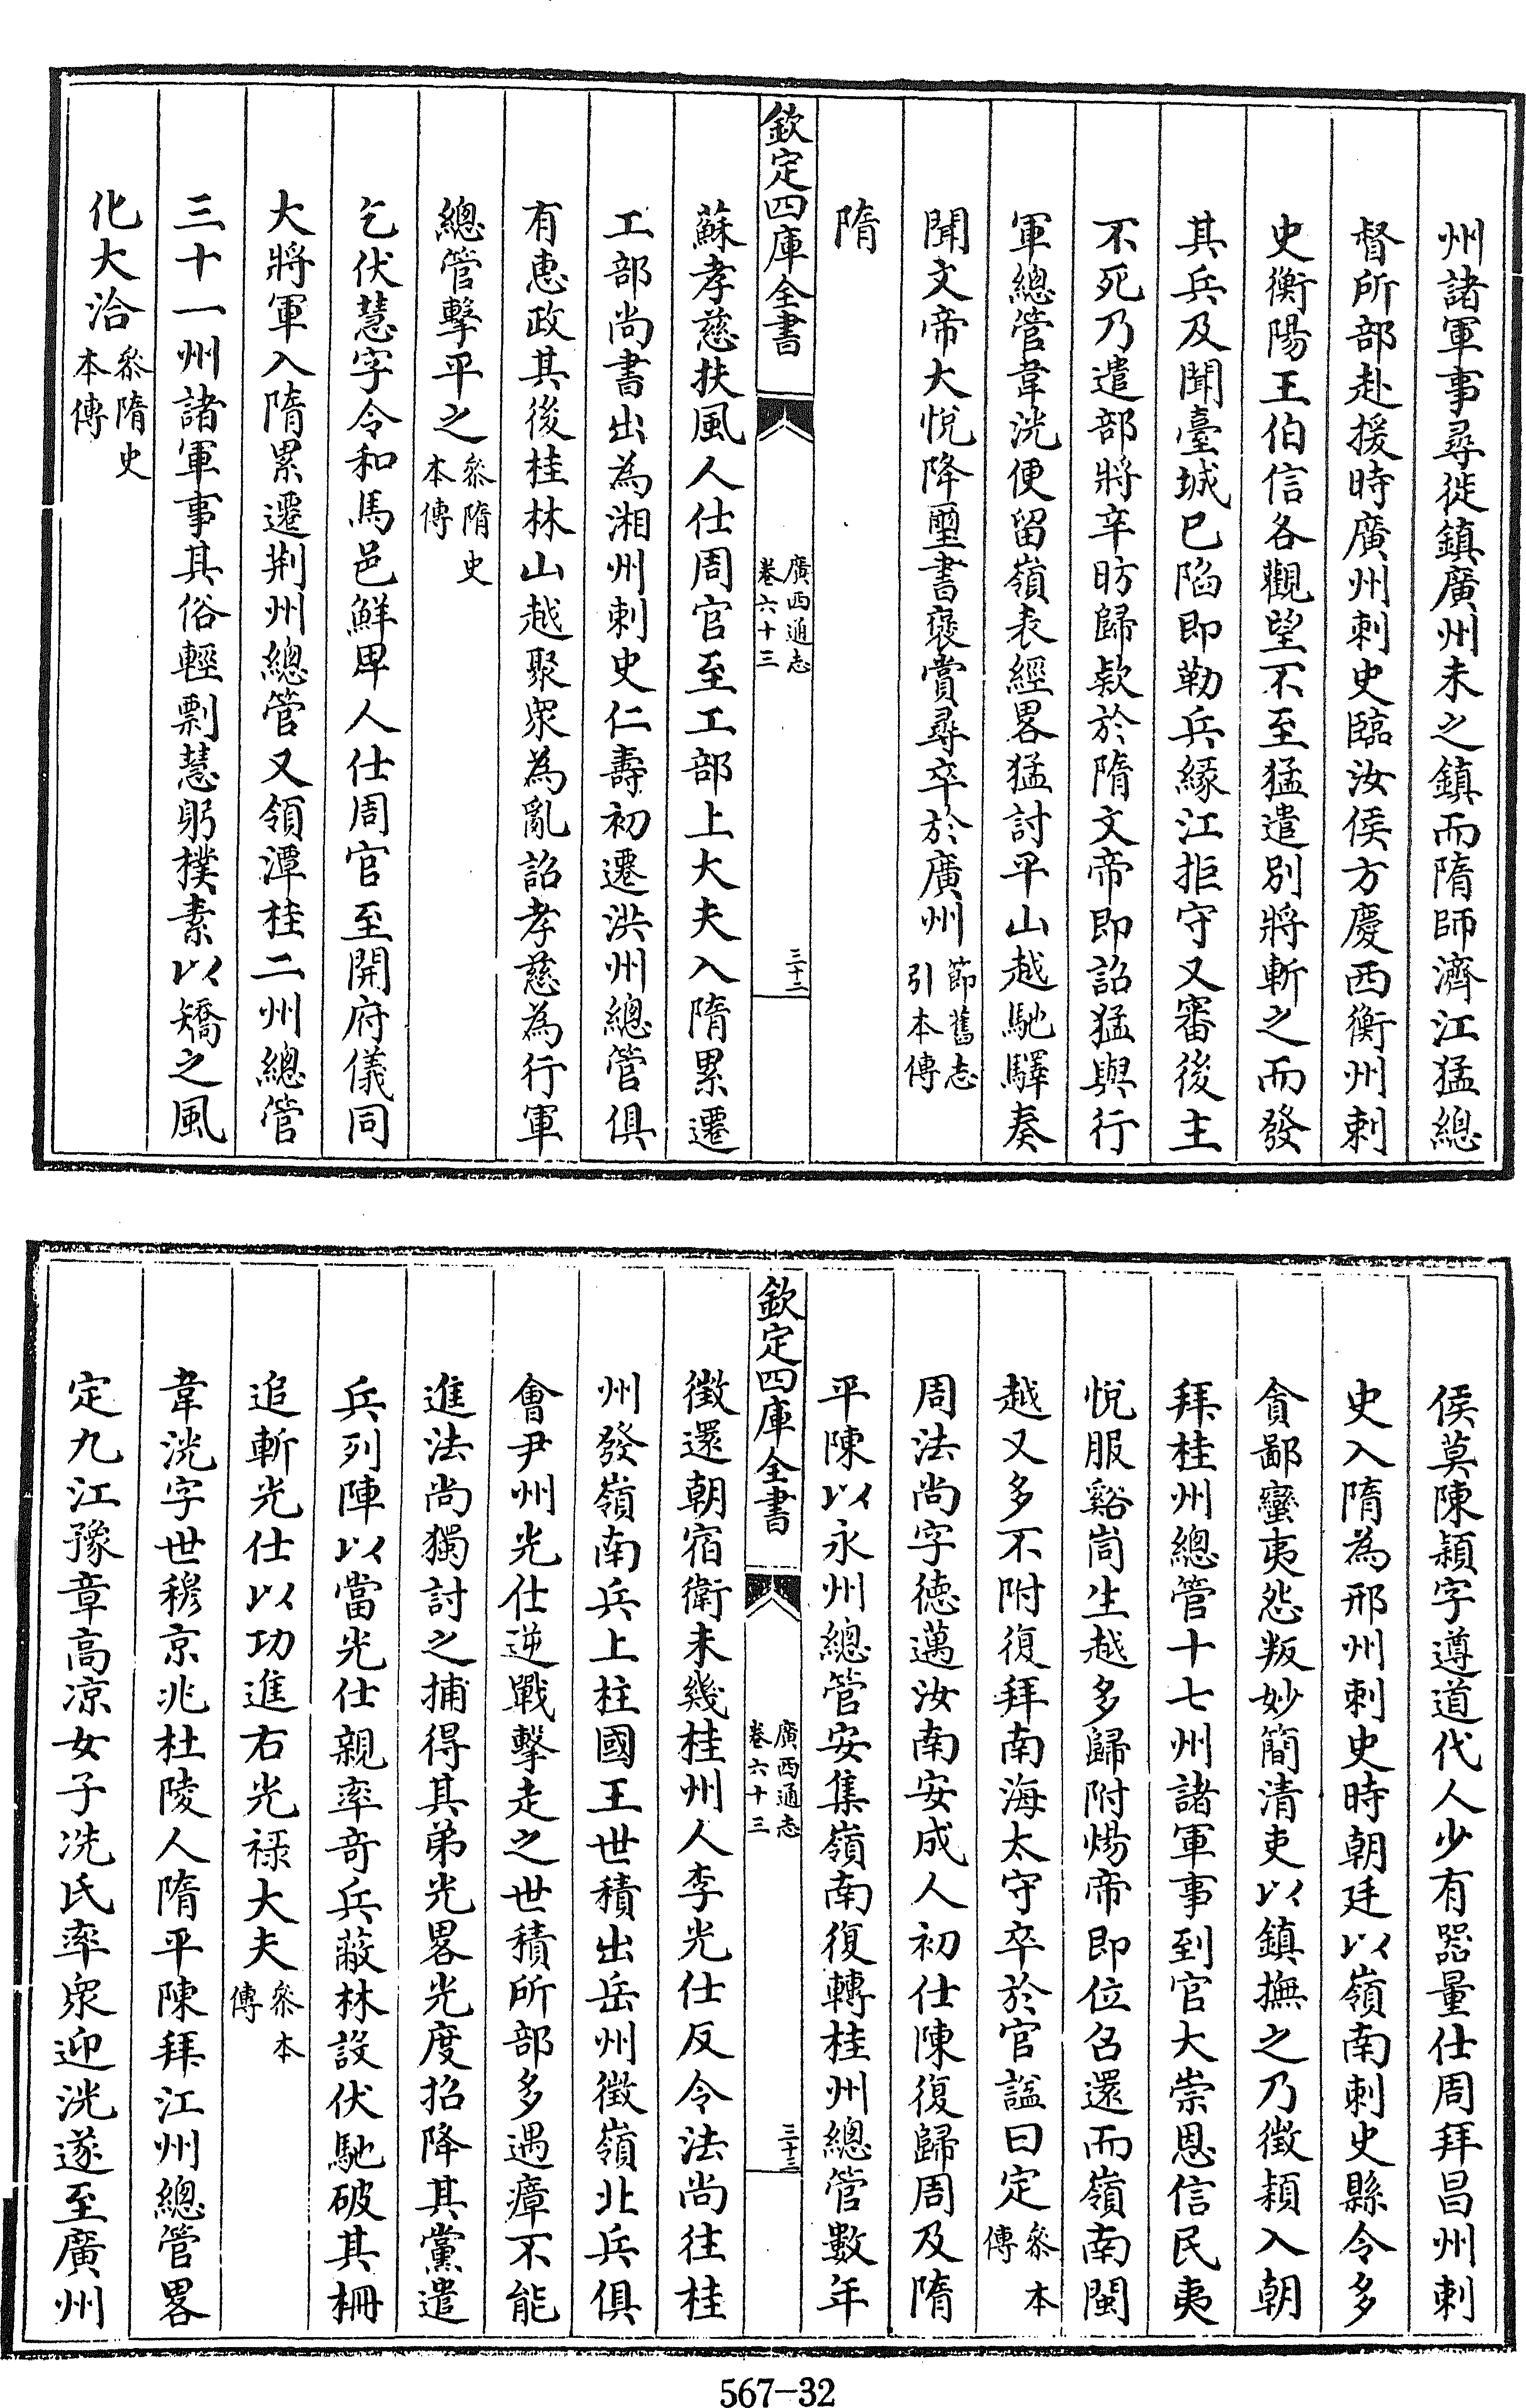 州諸軍事尋徙鎮廣州未之鎮而隋師濟江猛總
督所部赴援時廣州刺史臨汝侯方慶西衡州刺
史衡陽王伯信各觀望不至猛遣別將斬之而發
其兵及聞臺城已陷即勒兵緣江拒守又審後主
不死乃遣部將辛昉歸欵於隋文帝即詔猛與行
軍總管韋洸便留嶺表經畧猛討平山越馳驛奏
聞文帝大悅降璽書襃賞尋卒於廣州節舊志引本傳
隋
欽定四庫全書 廣西通志 卷六十三 三十二
蘇孝慈扶風人仕周官至工部上大夫入隋累遷
工部尚書出為湘州刺史仁壽初遷洪州總管俱
有惠政其後桂林山越聚衆為亂詔孝慈為行軍
總管擊平之叅隋史本傳
乞伏慧字令和馬邑鮮卑人仕周官至開府儀同
大將軍入隋累遷荆州總管又領潭桂二州總管
三十一州諸軍事其俗輕剽慧躬樸素以矯之風
化大洽叅隋史本傳
侯莫陳頴字遵道代人少有器量仕周拜昌州刺
史入隋為邢州刺史時朝廷以嶺南刺史縣令多
貪鄙蠻夷怨叛妙簡清吏以鎮撫之乃徵頴入朝
拜桂州總管十七州諸軍事到官大崇恩信民夷
悅服谿峝生越多歸附煬帝即位召還而嶺南閩
越又多不附復拜南海太守卒於官諡曰定叅本傳
周法尚字德邁汝南安成人初仕陳復歸周及隋
平陳以永州總管安集嶺南復轉桂州總管數年
欽定四庫全書 廣西通志 卷六十三 三十三
徵還朝宿衛未幾桂州人李光仕反令法尚往桂
州發嶺南兵上柱國王世積出岳州徵嶺北兵俱
會尹州光仕逆戰擊走之世積所部多遇瘴不能
進法尚獨討之捕得其弟光畧光度招降其黨遣
兵列陣以當光仕親率奇兵蔽林設伏馳破其柵
追斬光仕以功進右光祿大夫叅本傳
韋洸字世穆京兆杜陵人隋平陳拜江州總管畧
定九江豫章高凉女子冼氏率衆迎洸遂至廣州
567-32